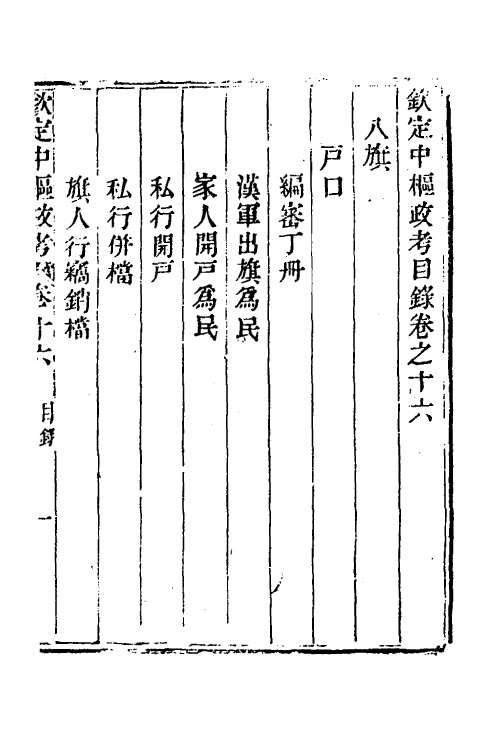 欽定中樞政考目錄卷之十六
八旗
戸口
編審丁冊
漢軍出旗爲民
家人開戸爲民
私行開戸
私行併檔
旗人行竊銷檔
欽定中樞政考 卷十六 目錄 一